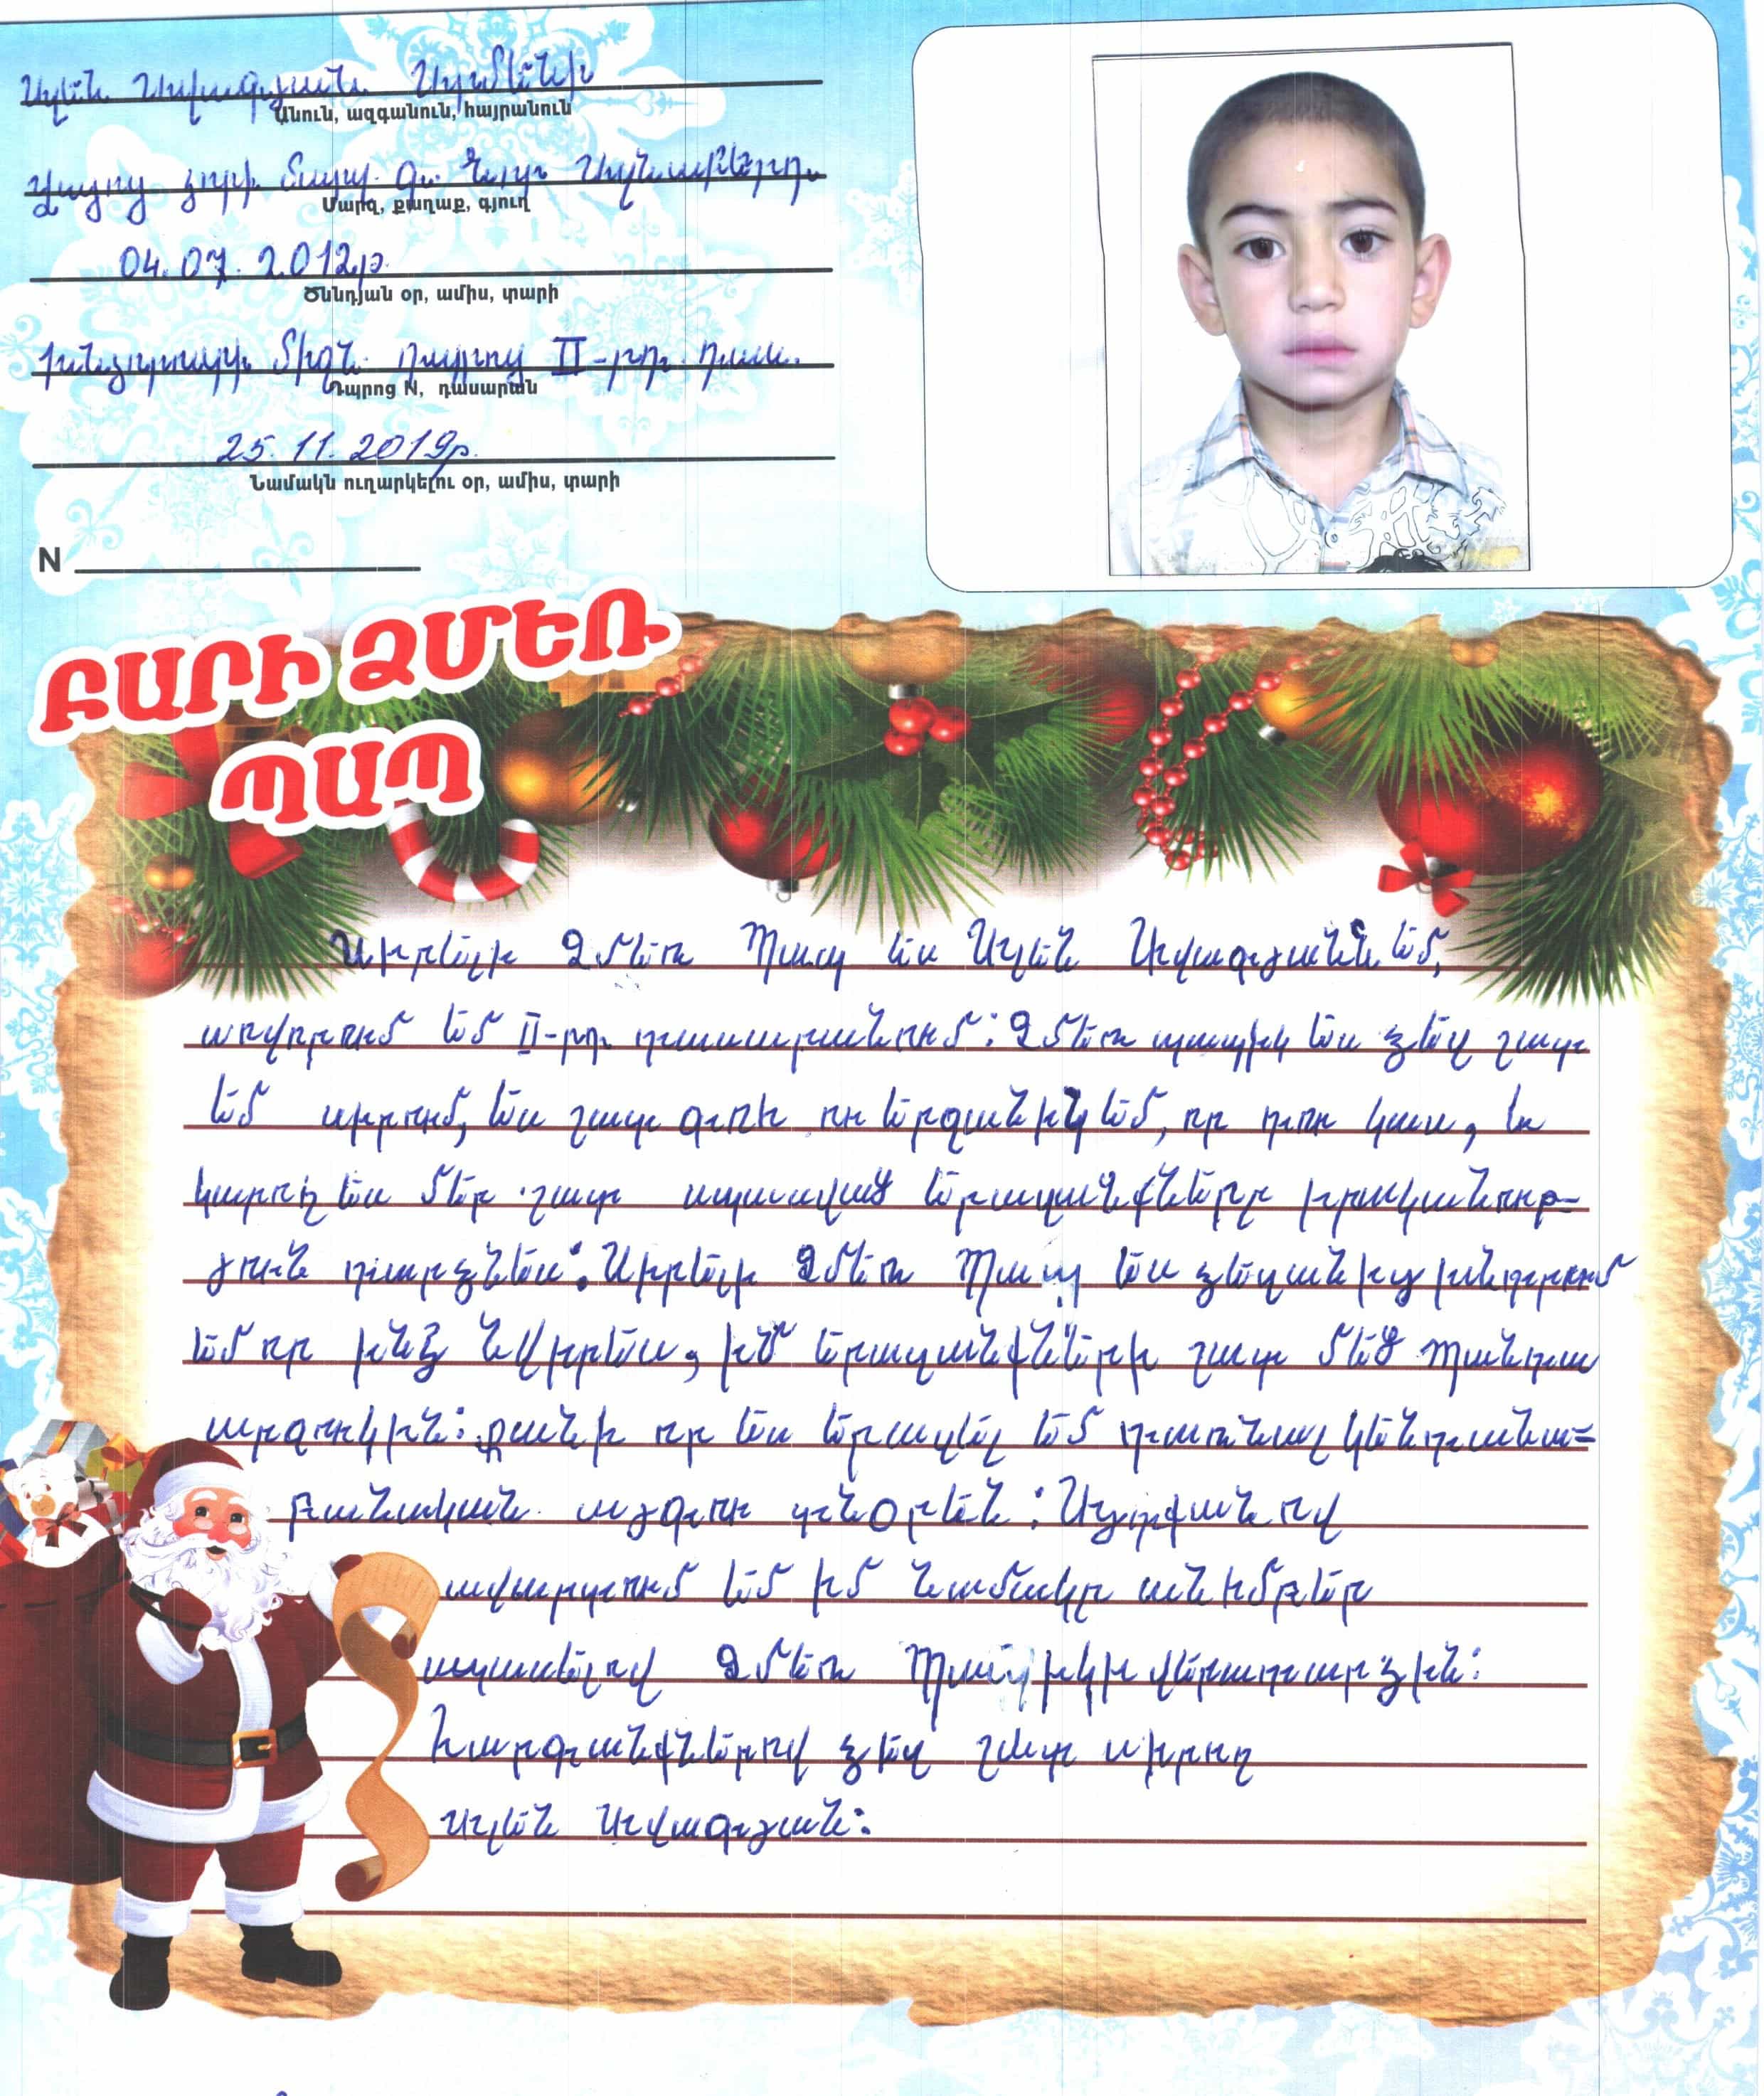 Ալեն Ավագյան Արմենի
Անուն, ազգանուն, հայրանուն
Վայոց ձորի մարզ. գ. Նոր Ազնաբերդ
Մարզ, քաղաք, գյուղ
04.07.2012թ.
Ծննդյան օր, ամիս, տարի
Խնձորուտի միջն. դպրոց II-րդ. դաս.
Դպրոց N, դասարան
25.11.2019թ.
Նամակն ուղարկելու օր, ամիս, տարի
N
ԲԱՐԻ ՁՄԵՌ
ՊԱՊ
Սիրելի Ձմեռ Պապ ես Ալեն Ավագյանն եմ,
սովորում եմ II-րդ դասարանում: Ձմեռ պապիկ ես ձեզ շատ
եմ սիրում, ես շատ գոհ ու երջանիկ եմ, որ դու կաս, և
կարող ես մեր շատ սպասված երազանքները իրականութ-
յուն դարձնես: Սիրելի Ձմեռ Պապ ես ձեզանից խնդրում
եմ որ ինձ նվիրես, իմ երազանքների շատ մեծ Պանդա
արջուկին: Քանի որ ես երազել եմ դառնալ կենդանա-
բանական այգու տնօրեն: Այսքանով
ավարտում եմ իմ նամակը անհամբեր
սպասելով Ձմեռ Պապիկի վերադարձին:
Հարգանքներով ձեզ շատ սիրող
Ալեն Ավագյան: